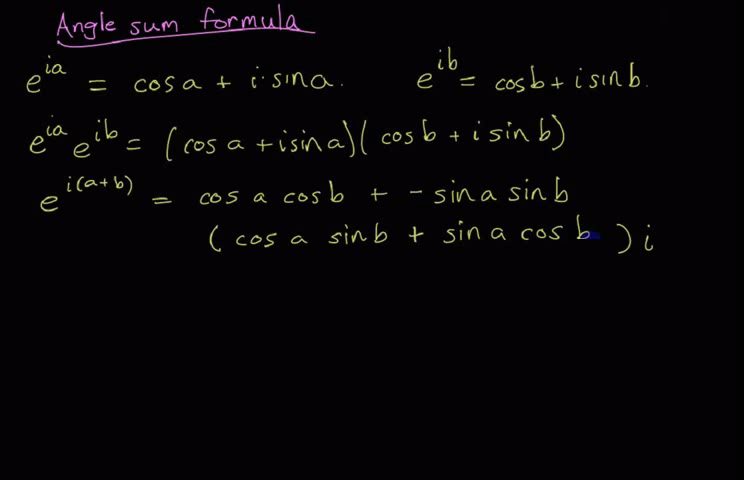 Angle sum formula
e^{ia} = cos a + i·sin a. e^{ib} = cos b + i sin b.
e^{ia} e^{ib} = (cos a + i sin a)(cos b + i sin b)
e^{i(a+b)} = cos a cos b + - sin a sin b
(cos a sin b + sin a cos b) i